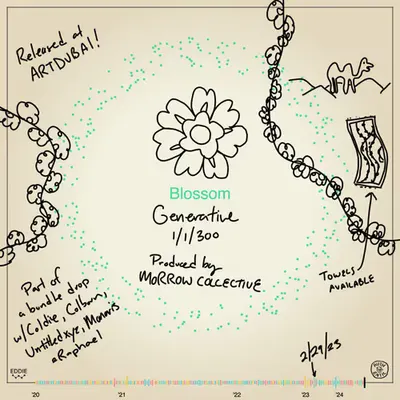 Released at
ARTDUBAI!
Blossom
Generative
1/1/300
Produced by
MORROW COLLECTIVE
TOWELS
AVAILABLE
Part of
a bundle drop
w/Coldie, Colborn,
Untitledxyz, Monaris
a Raphael
2/29/23
EDDIE
'20
'21
'22
'23
'24